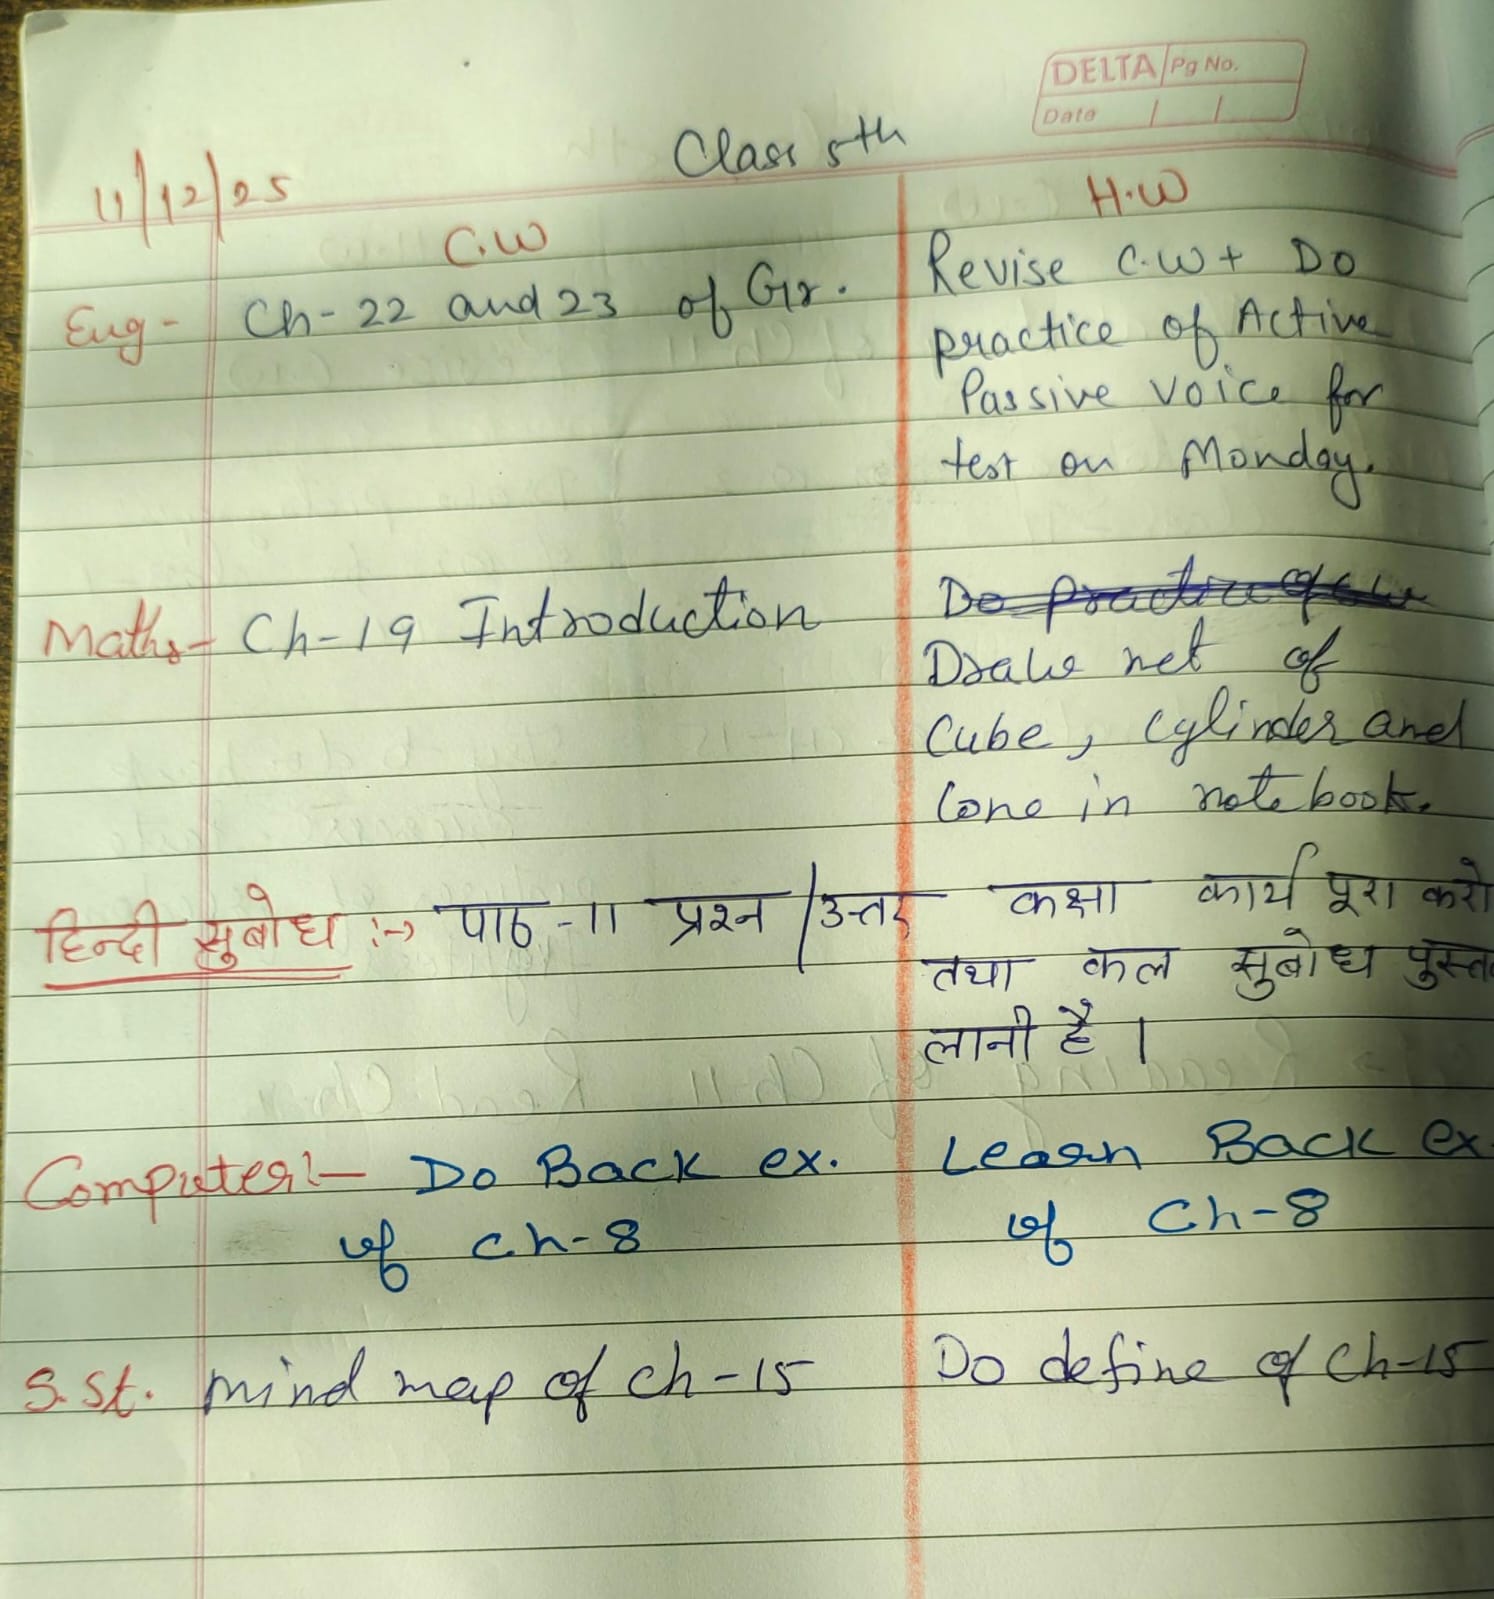 DELTA Pg No.
Date / /
Class 5th
11/12/25
C.W
H.W
Eng- Ch-22 and 23 of Gr.
Revise C.W + Do
practice of Active
Passive voice for
test on Monday.
Maths- Ch-19 Introduction
Do practice of
Draw net of
Cube, Cylinder and
Cone in notebook.
हिन्दी सुबोध :→ पाठ -11 प्रश्न/उत्तर
कक्षा कार्य पूरा करो
तथा कल सुबोध पुस्त
लानी है।
Computer:- Do Back ex.
of ch-8
Learn Back ex
of Ch-8
S.St. mind map of ch-15
Do define of Ch-15